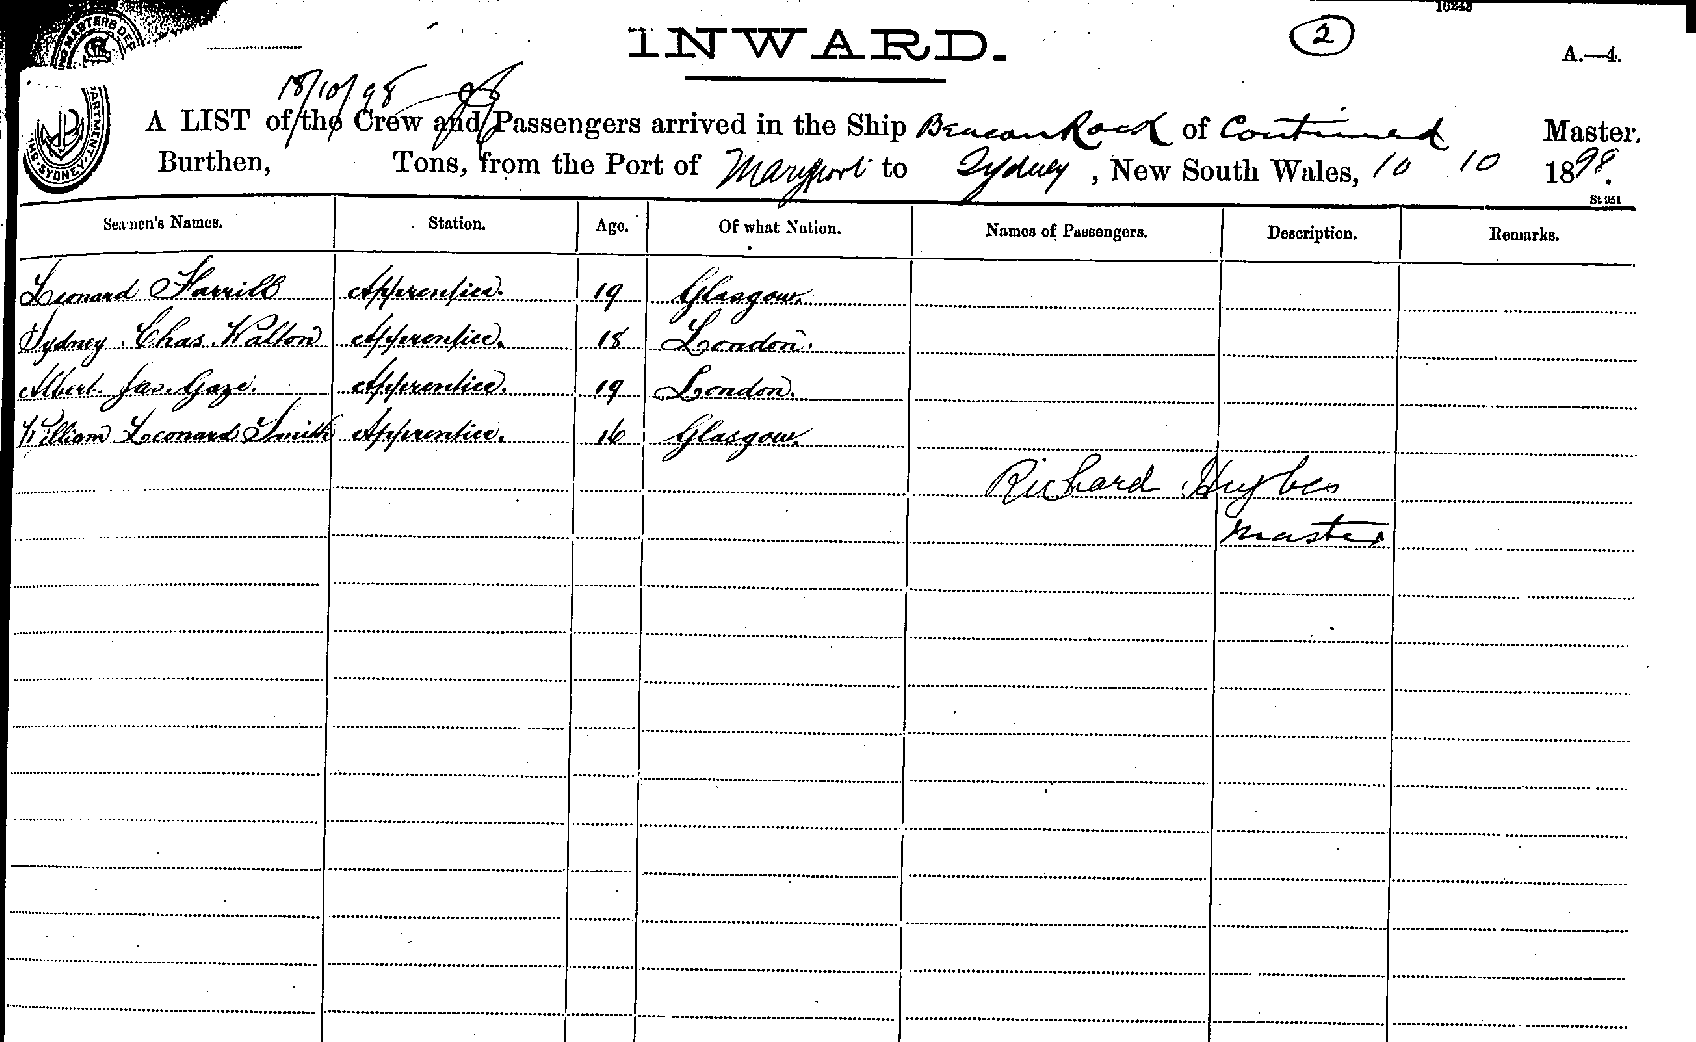 16243
INWARD.
2
A.—4.
18/10/98
A LIST of the Crew and Passengers arrived in the Ship Beacon Rock of Continued Master.
Burthen, Tons, from the Port of Maryport to Sydney, New South Wales, 10 10 1898.
St 951
Seamen's Names. Station. Age. Of what Nation. Names of Passengers. Description. Remarks.
Leonard Farrill Apprentice. 19 Glasgow.
Sydney Chas. Walton Apprentice. 18 London.
Albert Jas. Gaze. Apprentice. 19 London.
William Leonard Smith Apprentice. 16 Glasgow.
Richard Hughes
Master